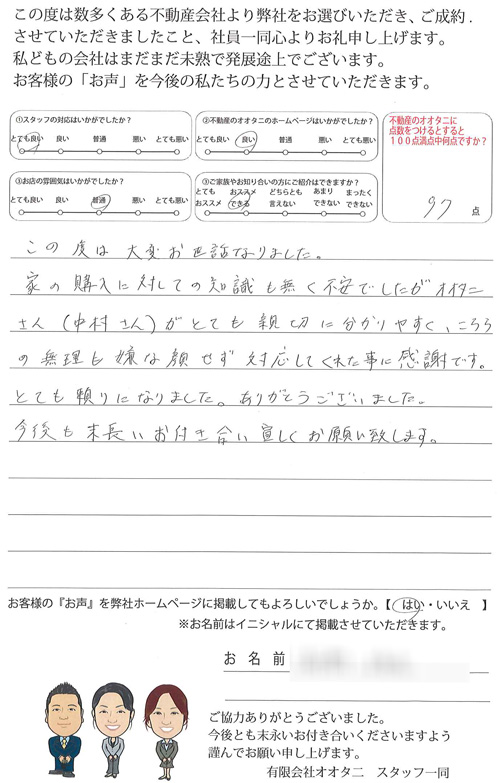 この度は数多くある不動産会社より弊社をお選びいただき、ご成約.
させていただきましたこと、社員一同心よりお礼申し上げます。
私どもの会社はまだまだ未熟で発展途上でございます。
お客様の「お声」を今後の私たちの力とさせていただきます。
①スタッフの対応はいかがでしたか?
とても良い 良い 普通 悪い とても悪い
②不動産のオオタニのホームページはいかがでしたか?
とても良い 良い 普通 悪い とても悪い
不動産のオオタニに
点数をつけるとすると
100点満点中何点ですか?
97 点
③お店の雰囲気はいかがでしたか?
とても良い 良い 普通 悪い とても悪い
③ご家族やお知り合いの方にご紹介はできますか?
とても おススメ どちらとも あまり まったく
おススメ できる 言えない できない できない
この度は大変お世話なりました。
家の購入に対しての知識も無く不安でしたがオオタニ
さん(中村さん)がとても親切に分かりやすく、こちら
の無理も嫌な顔せず対応してくれた事に感謝です。
とても頼りになりました。ありがとうございました。
今後も末長いお付き合い宜しくお願い致します。
お客様の『お声』を弊社ホームページに掲載してもよろしいでしょうか。【 はい・いいえ 】
※お名前はイニシャルにて掲載させていただきます。
お 名 前
ご協力ありがとうございました。
今後とも末永いお付き合いくださいますよう
謹んでお願い申し上げます。
有限会社オオタニ スタッフ一同